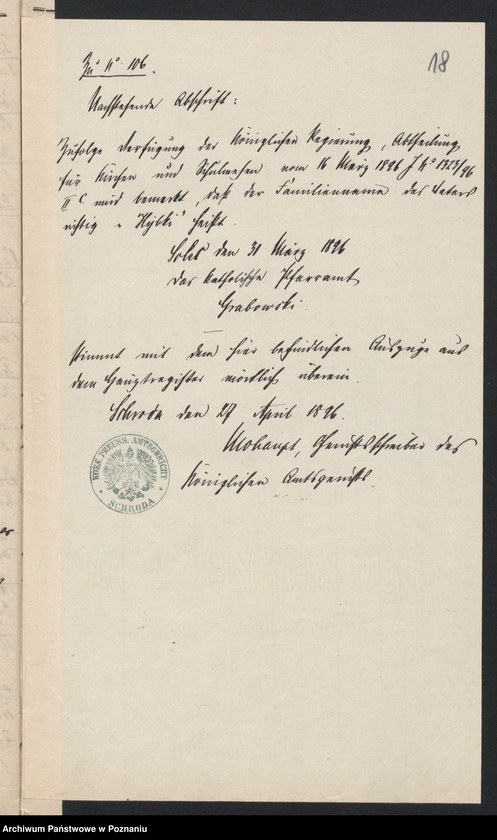 18
Zu No 106.
Nachstehende Abschrift:
Zufolge Verfügung der Königlichen Regierung, Abtheilung
für Kirchen und Schulwesen vom 16 März 1896 J No 1323/96
II c wird bemerkt, daß der Familienname des Vaters
richtig „Hybki" heißt.
den 31 März 1896
Das katholische Pfarramt
Grabowski.
stimmt mit dem hier befindlichen Auszuge aus
dem Hauptregister wörtlich überein.
Schroda den 27 April 1896.
Gerichtsschreiber des
Königlichen Amtsgerichts.
KOEN. PREUSS. AMTSGERICHT
* SCHRODA *
Archiwum Państwowe w Poznaniu